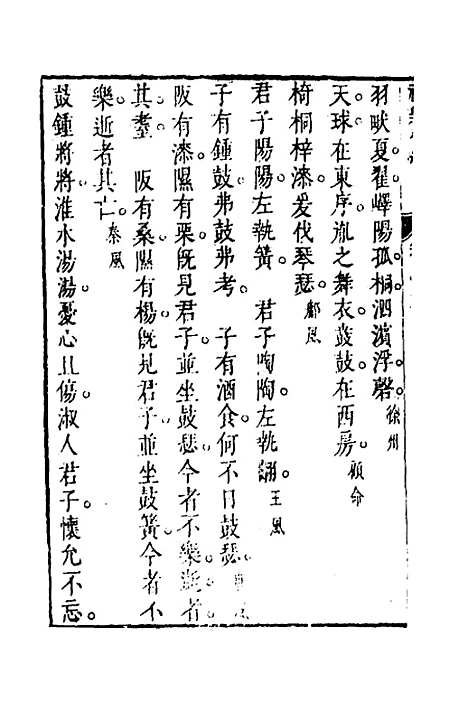 羽畎夏翟嶧陽孤桐泗濱浮磬。徐州
天球在東序胤之舞衣鼖鼓在西房。顧命
椅桐梓漆爰伐琴瑟。鄘風
君子陽陽左執簧 君子陶陶左執翿。王風
子有鍾鼓弗鼓弗考。 子有酒食何不日鼓瑟。
阪有漆。隰有栗。旣見君子。並坐鼓瑟。今者不樂。逝者
其耋 阪有桑。隰有楊。旣見君子。並坐鼓簧。今者不
樂。逝者其亡。秦風
鼓鍾將將。淮水湯湯。憂心且傷。淑人君子。懷允不忘。